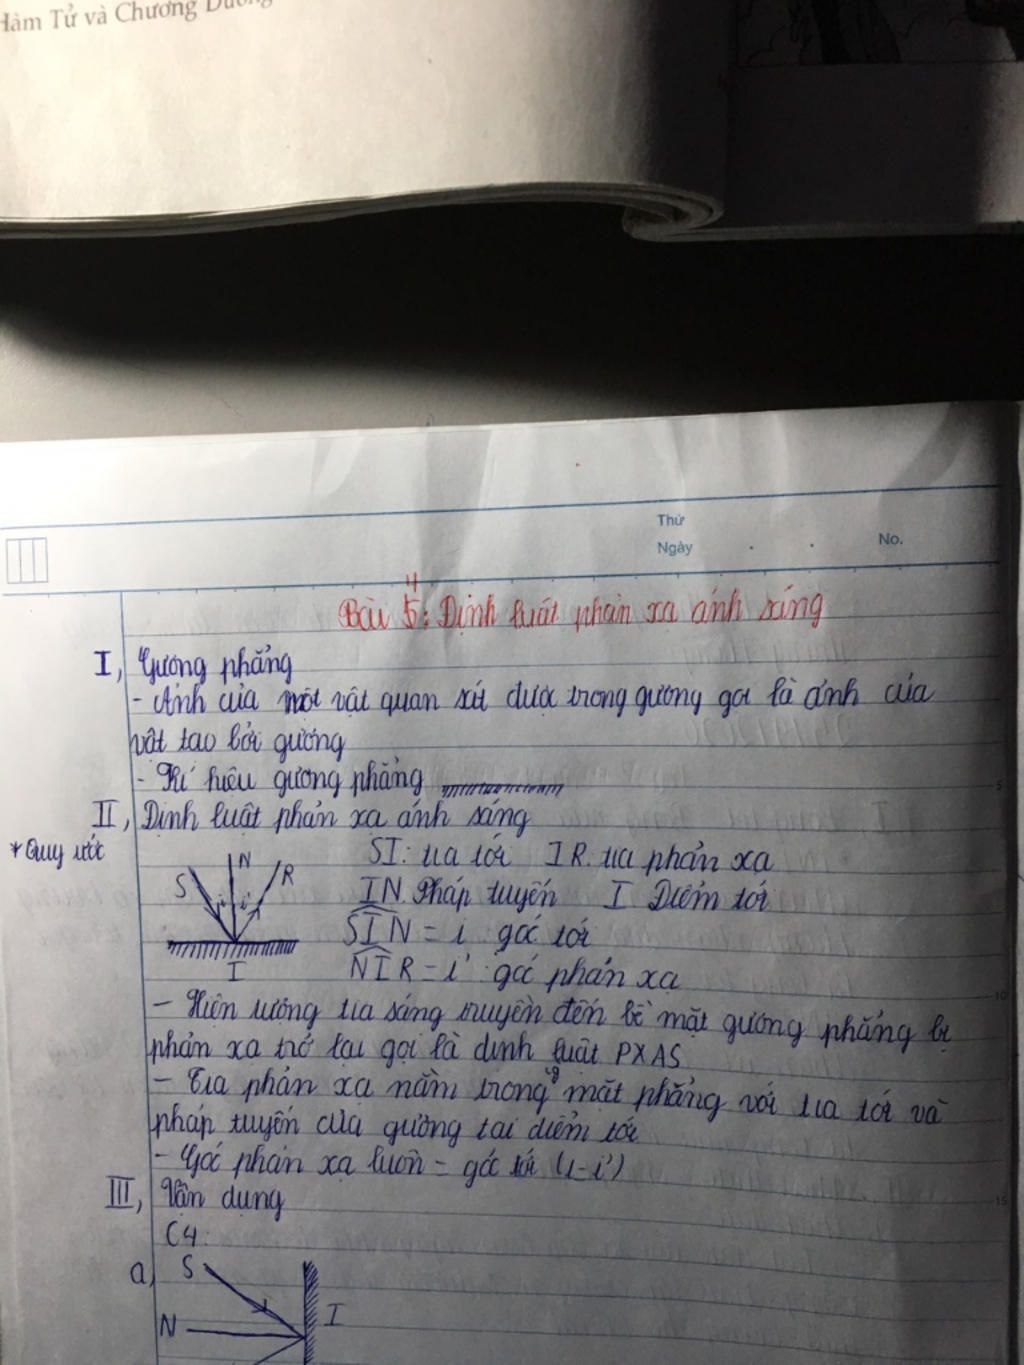 Hàm Tử và Chương Dương
Thứ
Ngày . . No.
4
Bài 5: Định luật phản xạ ánh sáng
I, Gương phẳng
- Ảnh của một vật quan sát được trong gương gọi là ảnh của
vật tạo bởi gương
- Kí hiệu gương phẳng
5
II, Định luật phản xạ ánh sáng
* Quy ước
S N R
i i'
I
SI: tia tới IR: tia phản xạ
IN: Pháp tuyến I Điểm tới
SIN = i : góc tới
NIR = i' : góc phản xạ
10
- Hiện tượng tia sáng truyền đến bề mặt gương phẳng bị
phản xạ trở lại gọi là định luật PXAS
- Tia phản xạ nằm trong mặt phẳng với tia tới và
pháp tuyến của gương tại điểm tới
- Góc phản xạ luôn = góc tới (i=i')
15
III, Vận dụng
C4:
a, S
N I